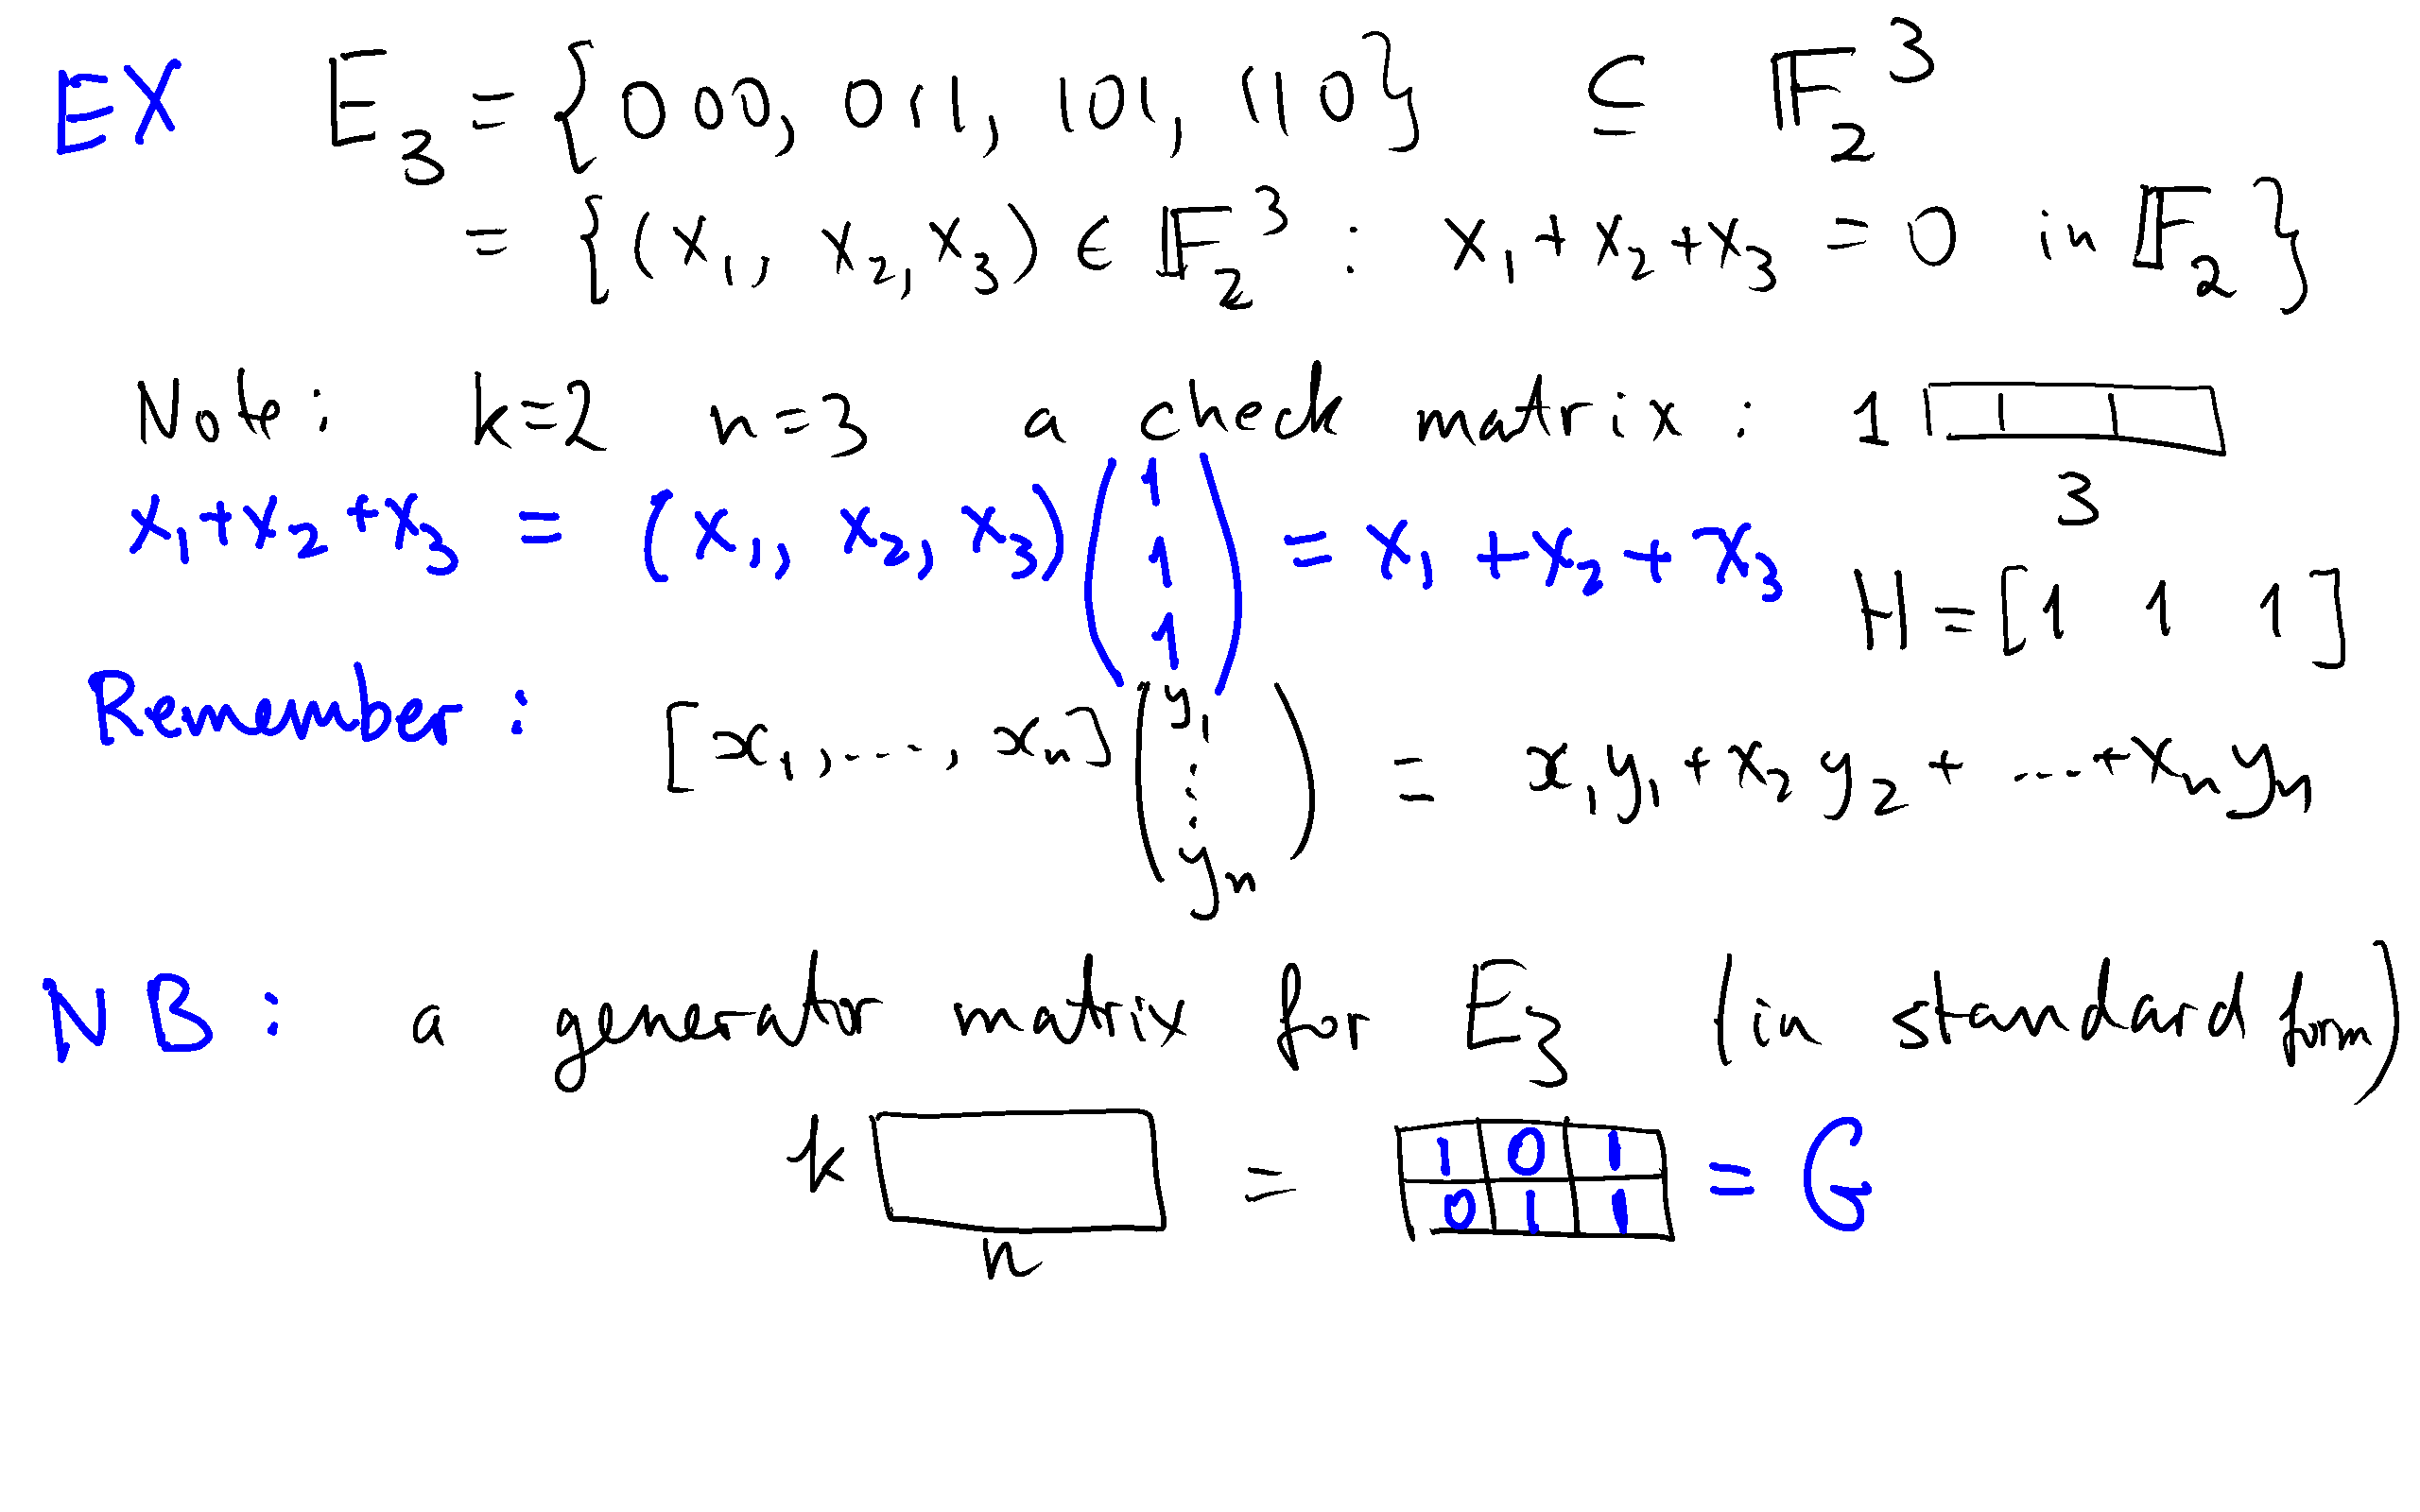 EX E₃ = {000, 011, 101, 110} ⊆ 𝔽₂³
= {(x₁, x₂, x₃) ∈ 𝔽₂³ : x₁ + x₂ + x₃ = 0 in 𝔽₂}
Note: k=2 n=3 a check matrix : 1
3
x₁+x₂+x₃ = (x₁, x₂, x₃) (1 1 1) = x₁ + x₂ + x₃
H = [1 1 1]
Remember : [x₁, ..., xₙ] (y₁ ⋮ yₙ) = x₁y₁ + x₂y₂ + ... + xₙyₙ
NB : a generator matrix for E₃ (in standard form)
k n = 1 0 1 = G
0 1 1